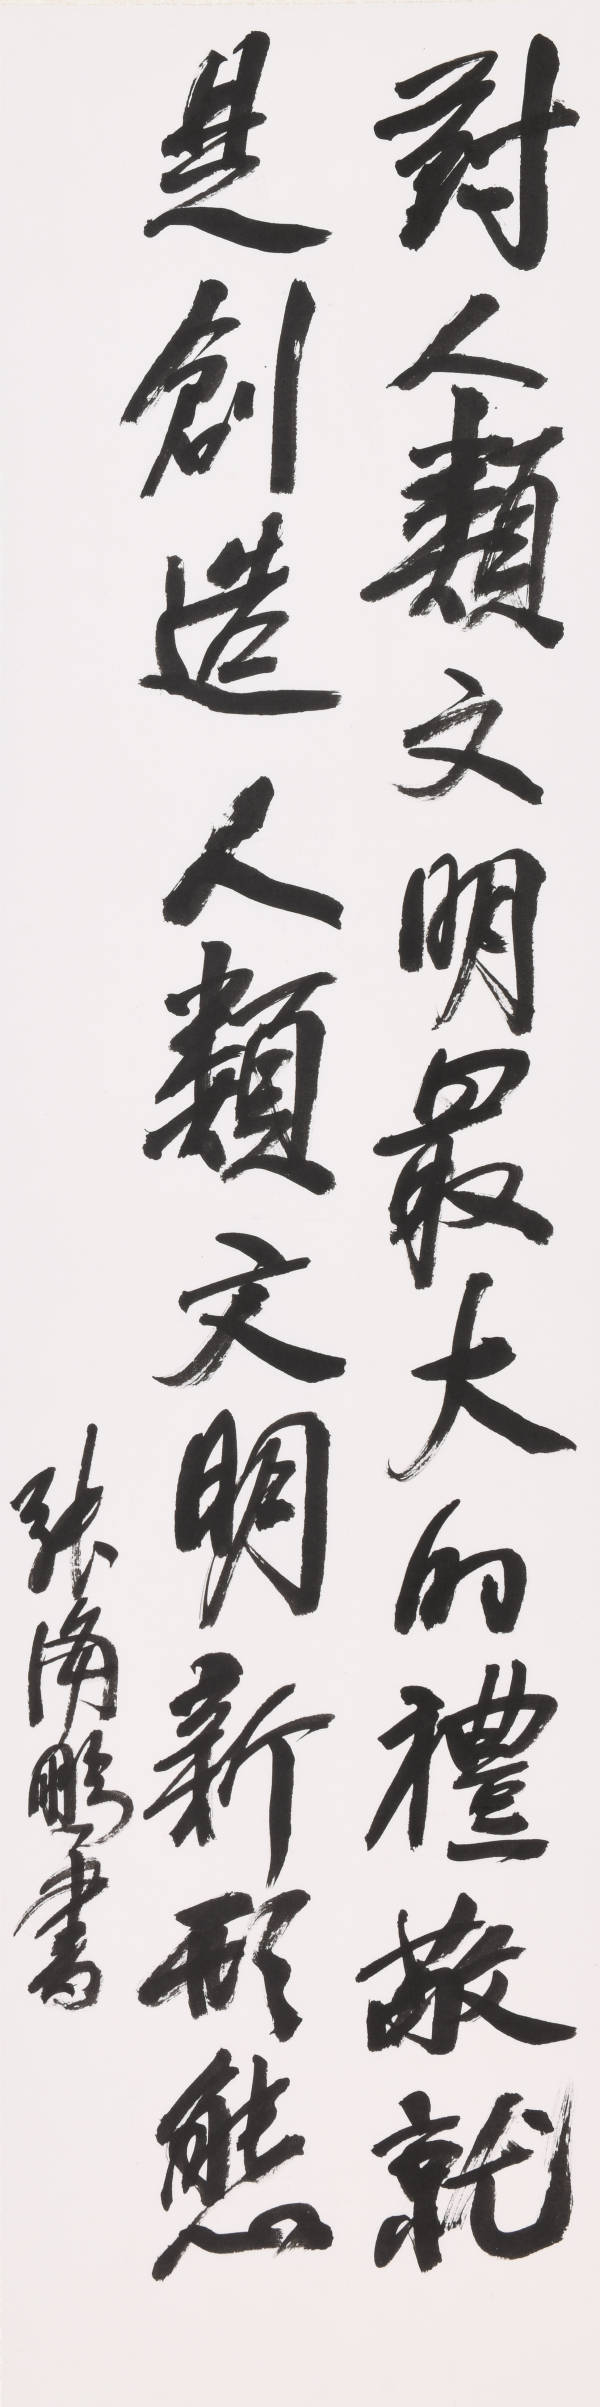 對人類文明最大的禮敬就
是創造人類文明新形態
张海鹏書